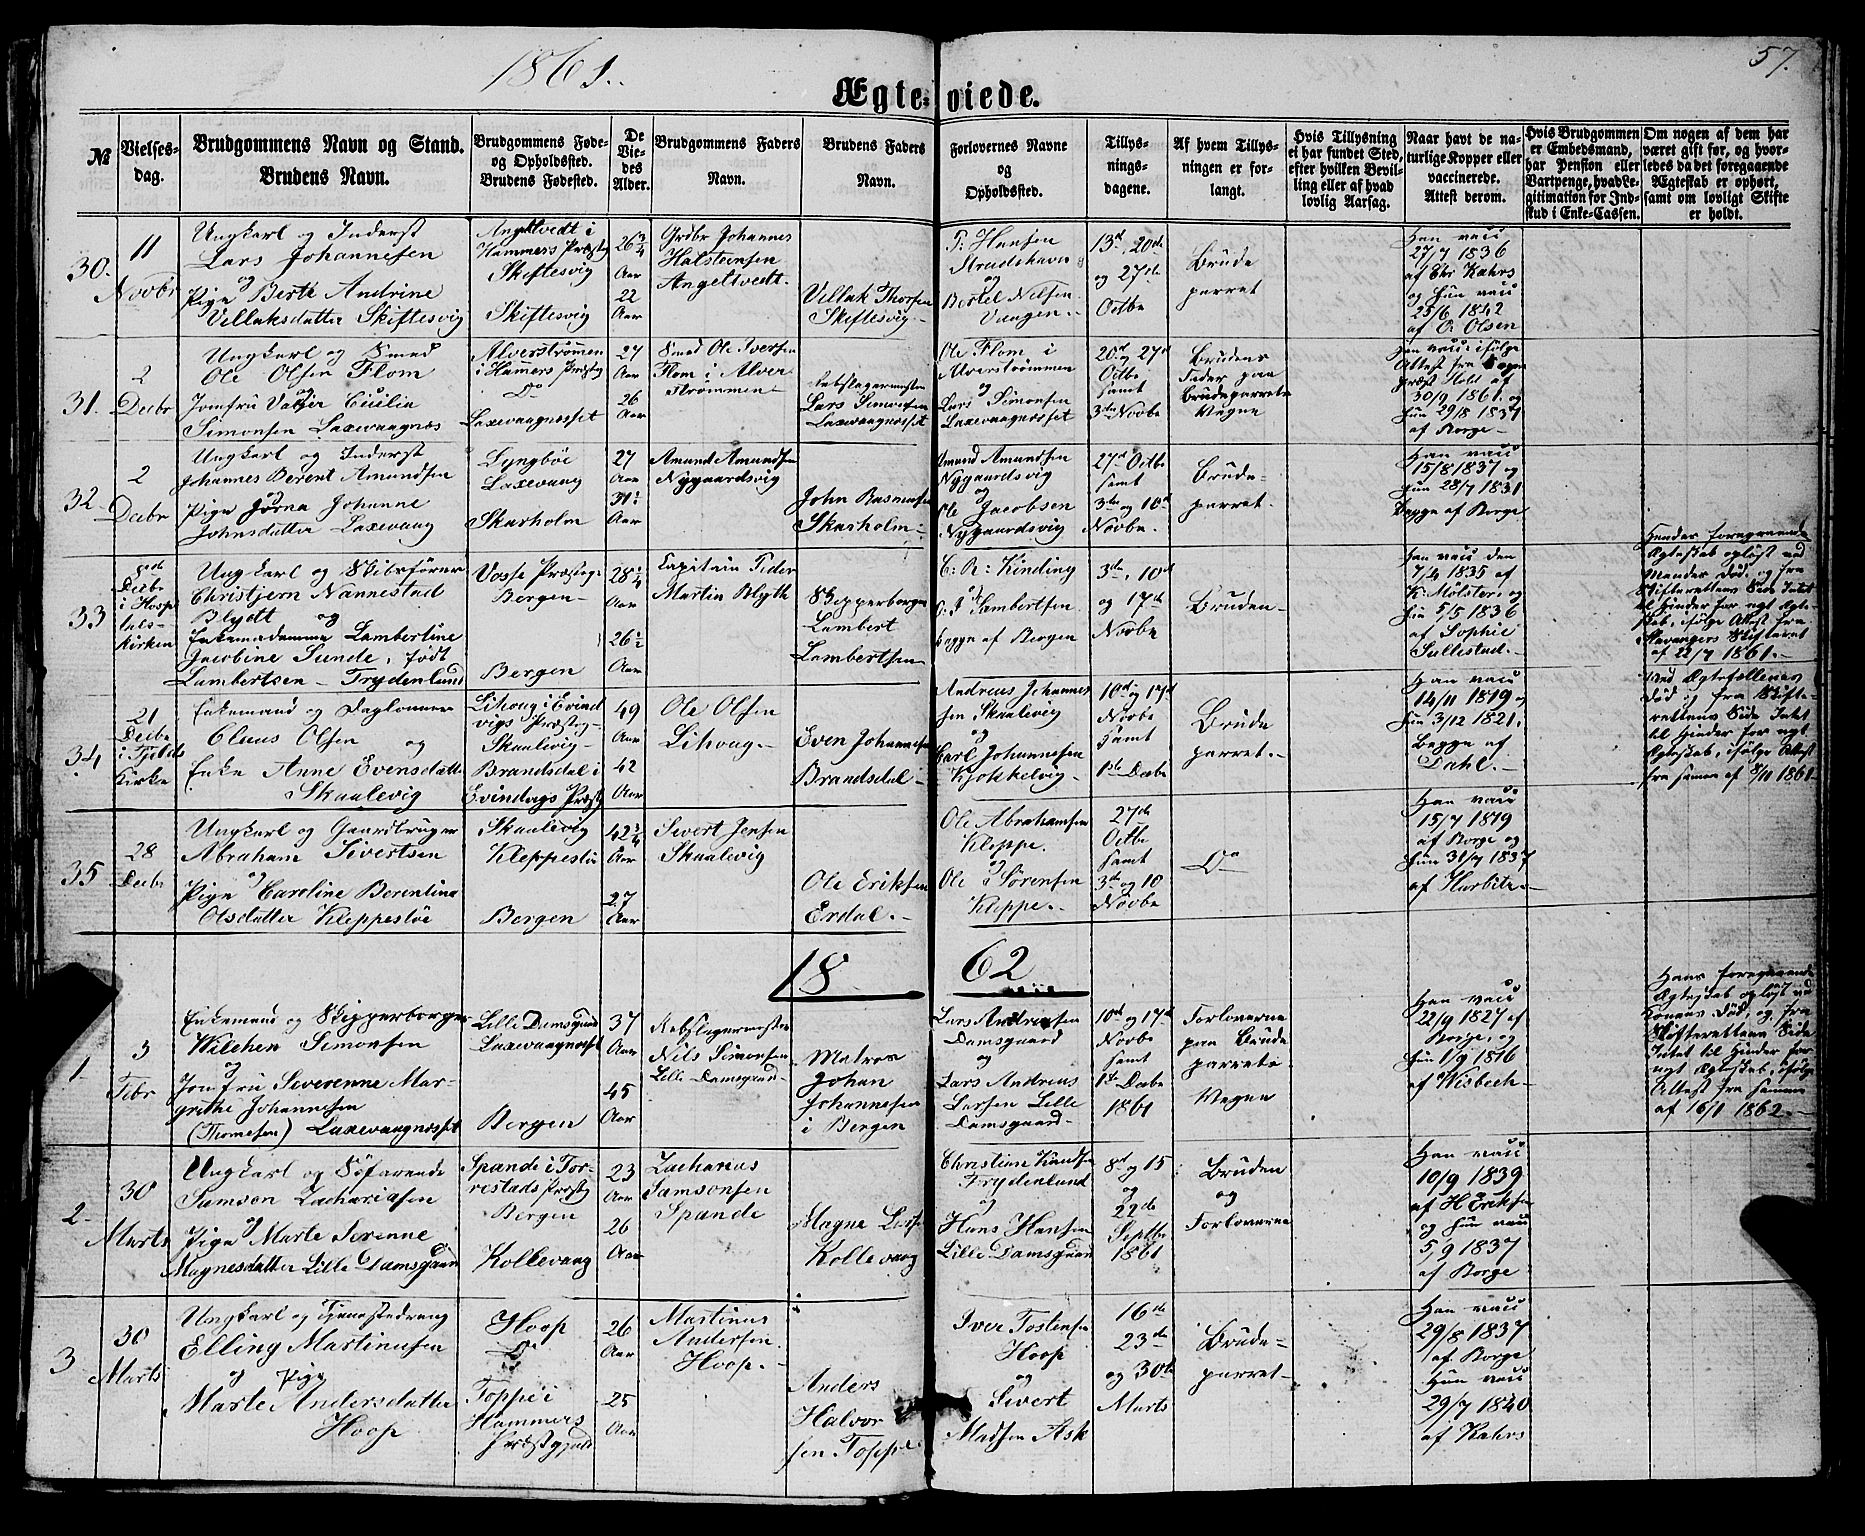 1861.
57.
Ægteviede.
№
Vielses-
dag.
Brudgommens Navn og Stand.
Brudens Navn.
Brudgommens Føde-
og Opholdssted.
Brudens Fødested.
De
Vie-
des
Alder.
Brudgommens Faders
Navn.
Brudens Faders
Navn.
Forlovernes Navne
og
Opholdssted.
Tillys-
nings-
dagene.
Af hvem Tillys-
ningen er for-
langt.
Hvis Tillysning
ei har fundet Sted,
efter hvilken Bevil-
ling eller af hvad
lovlig Aarsag.
Naar havt de na-
turlige Kopper eller
vaccinerede.
Attest derom.
Hvis Brudgommen
er Embedsmand,
har Pension eller
Vartpenge, hvad Le-
gitimation for Ind-
skud i Enke-Cassen.
Om nogen af dem har
været gift før, og hvor-
ledes da det foregaaende
Ægteskab er ophørt,
samt om lovligt Skifte
er holdt.
30.
11
Novbr
Ungkarl og Inderst
Lars Johannesen
og
Pige Berte Andrine
Villaksdatter Skiftesvig
Angeltvedt i
Hammers Præstg
Skiftesvig
Skiftesvig
26 3/4
Aar
22
Aar
Grdbr Johannes
Halsteinsen
Angeltvedt.
Villak Thorsen
Skiftesvig
P. Hansen
Strudshavn
og
Bertel Nilsen
Vaagen.
13de, 20de
og 27de
Octbr
Brude
parret
Han vacc
27/7 1836
af Ehr Kahrs
og hun vacc
25/6 1842
af O. Olsen
31.
2
Decbr
Ungkarl og Smed
Ole Olsen Flom
og
Jomfru Valger Cecilia
Simonsen Laxevaagnæs
Alverstrømmen
i Hamers Præstg
Do
Laxevaagnesset
27
Aar
26
Aar
Smed Ole Iversen
Flom i Alver
strømmen
Rebslagermester
Lars Simonsen
Laxevaagnesset
Ole Flom i
Alverstrømmen
og
Lars Simonsen
Laxevaagnesset
20de og 27de
Octbr
samt
3die Novbr
Brudens
Fader paa
Brudeparrets
Vegne
Han vacc ifølge
Attest fra Sogne
præst Hold af
30/9 1861. og
hun 29/8 1837
af Borge
32.
2
Decbr
Ungkarl og Inderst
Johannes Berent Amundsen
og
Pige Jørna Johanne
Johnsdatter Laxevaag
Lyngbøe
Laxevaag
Skarholm
27
Aar
31 1/2
Aar
Amund Amundsen
Nygaardsvig
John Rasmusen
Skarholm
Amund Amundsen
Nygaardsvig
og
Ole Jacobsen
Nygaardsvig
27de Octbr
samt
3die og 10de
Novbr.
Brude-
parret.
Han vacc
15/8 1837 og
hun 28/7 1831
Begge af Borge
33
Decbr
i Hospi
tals-
Kirken
Ungkarl og Skibsfører
Christjern Nannestad
Blydt og
Enkemadamme Lambertine
Jacobine Sunde, født
Lambertsen - Frydenlund
Vosse Præstg-
Bergen
Bergen
28 1/4
Aar
26 1/2
Aar
Capitain Peder
Martin Blyth
Skipperborger
Lambert
Lambertsen
C: R: Kinding
og
Lambertsen
begge af Bergen
3die, 10de
og 17de
Novbr
Bruden
Han vacc den
7/4 1835 af
K. Mölster, og
hun 5/5 1836
af Sophie
Sullestad.
Hendes foregaaende
Ægteskab opløst ved
Mandens Død, og fra
Skifterettens Side Intet
til Hinder for nyt Ægte-
skab, ifølge Attest fra
Stavangers Skifteret
af 22/7 1861.
34.
21
Decbr
i Fjelds
Kirke
Enkemand og Daglønner
Claus Olsen og
Enke Anne Evensdatter
Skaalevig
Lihoug i Evind
vigs Præstg-
Skaalevig-
Brandsdal i
Evindvigs Præstg
49
Aar
42
Aar
Ole Olsen
Lihoug.
Even Johannesen
Brandsdal
Andreas Johannes
sen Skaalevig
og
Carl Johannesen
Kjøkkelvig
10de og 17de
Novbr
samt
1ste Decbr
Brude
parret.
Han vacc
14/11 1819 og
hun 3/12 1821.
Begge af
Dahl.
Ved Ægtefællenes
Død og fra Skifte-
rettens Side Intet
til Hinder for nyt
Ægteskab, ifølge Attest
fra samme af 8/11 1861
35
28
Decbr
Ungkarl og Gaardbruger
Abraham Sivertsen
og
Pige Caroline Berentina
Olsdatter Kleppestøe
Skaalevig
Kleppestøe
Bergen
42 1/4
Aar
27
Aar
Sivert Jensen
Skaalevig
Ole Eriksen
Erdal.
Ole Abrahamsen
Kleppe.
og
Ole Sørensen
Kleppe.
27de
Octbr
samt
3die og 10
Novbr
Do
Han vacc
15/7 1819
af Borge og
hun 31/7 1837
af Harbitz
18 62
1.
3
Febr
Enkemand og Skipperborger
Wilchen Simonsen
og
Jomfru Severenne Mar-
grethe Johannesen
(Thomesen) Laxevaagnesset
Lille Damsgaard
Laxevaagnesset
Bergen
37
Aar
45
Aar
Rebslagermester
Nils Simonsen
Lille Damsgaard
Matros
Johan
Johannesen
i Bergen
Lars Andreasen
Damsgaard
og
Lars Andreas
Larsen Lille
Damsgaard
10de og 17de
Novbr
samt
1ste Decbr
1861
Forloverne
paa Brude
parrets
Vegne
Han vacc
22/9 1827 af
Borge, og
hun 1/9 1816
af Wisbech
Hans foregaaende
Ægteskab opløst ved
Konens Død, og fra
Skifterettens Side
Intet til Hinder for
nyt Ægteskab, ifølge
Attest fra samme
af 16/1 1862.
2
30
Marts
Ungkarl og Søfarende
Samson Zachariasen
og
Pige Marte Serine
Magnesdatter Lille Damsgaard
Spande i For-
restads Præstg
Bergen
Kollevaag
23
Aar
26
Aar
Zacharias
Samsonsen
Spande
Magne Larsen
Kollevaag
Christian Knudsen
Frydenlund
og
Hans Hansen
Lille Damsgaard
8de og 15
og
22de
Septbr
1861
Bruden
og
Forloverne
Han vacc
10/9 1839
af H Eriksen
og hun vacc
5/9 1837
af Borge
3
30
Marts
Ungkarl og Tjenestedreng
Elling Martinusen
og Pige
Marte Andersdatter
Hoop
Hoop
Do
Toppe i
Hammers
Præstgjeld
26
Aar
25
Aar
Martinus
Andersen
Hoop.
Anders
Halvor
sen Toppe
Iver Tostensen
Hoop
og
Sivert
Madsen Ask
16de
23de
og 30te
Marts
Brude-
parret
Han vacc
29/8 1837
af Borge
hun vacc
29/7 1840
af Kahrs